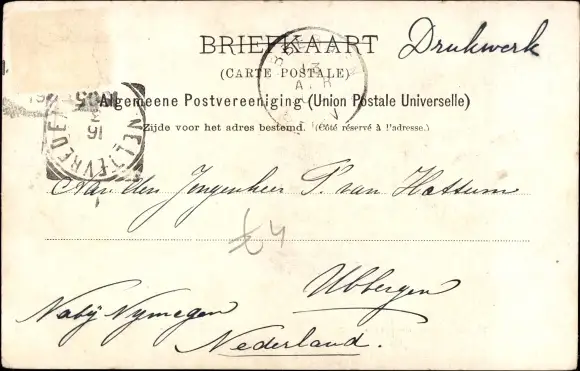 BRIEFKAART Drukwerk
(CARTE POSTALE)
Algemeene Postvereeniging (Union Postale Universelle)
Zijde voor het adres bestemd. (Côté réservé à l'adresse.)
Aan den Jongenheer P. van Hattum
£4
Ubbergen
Nabÿ Nymegen
Nederland.